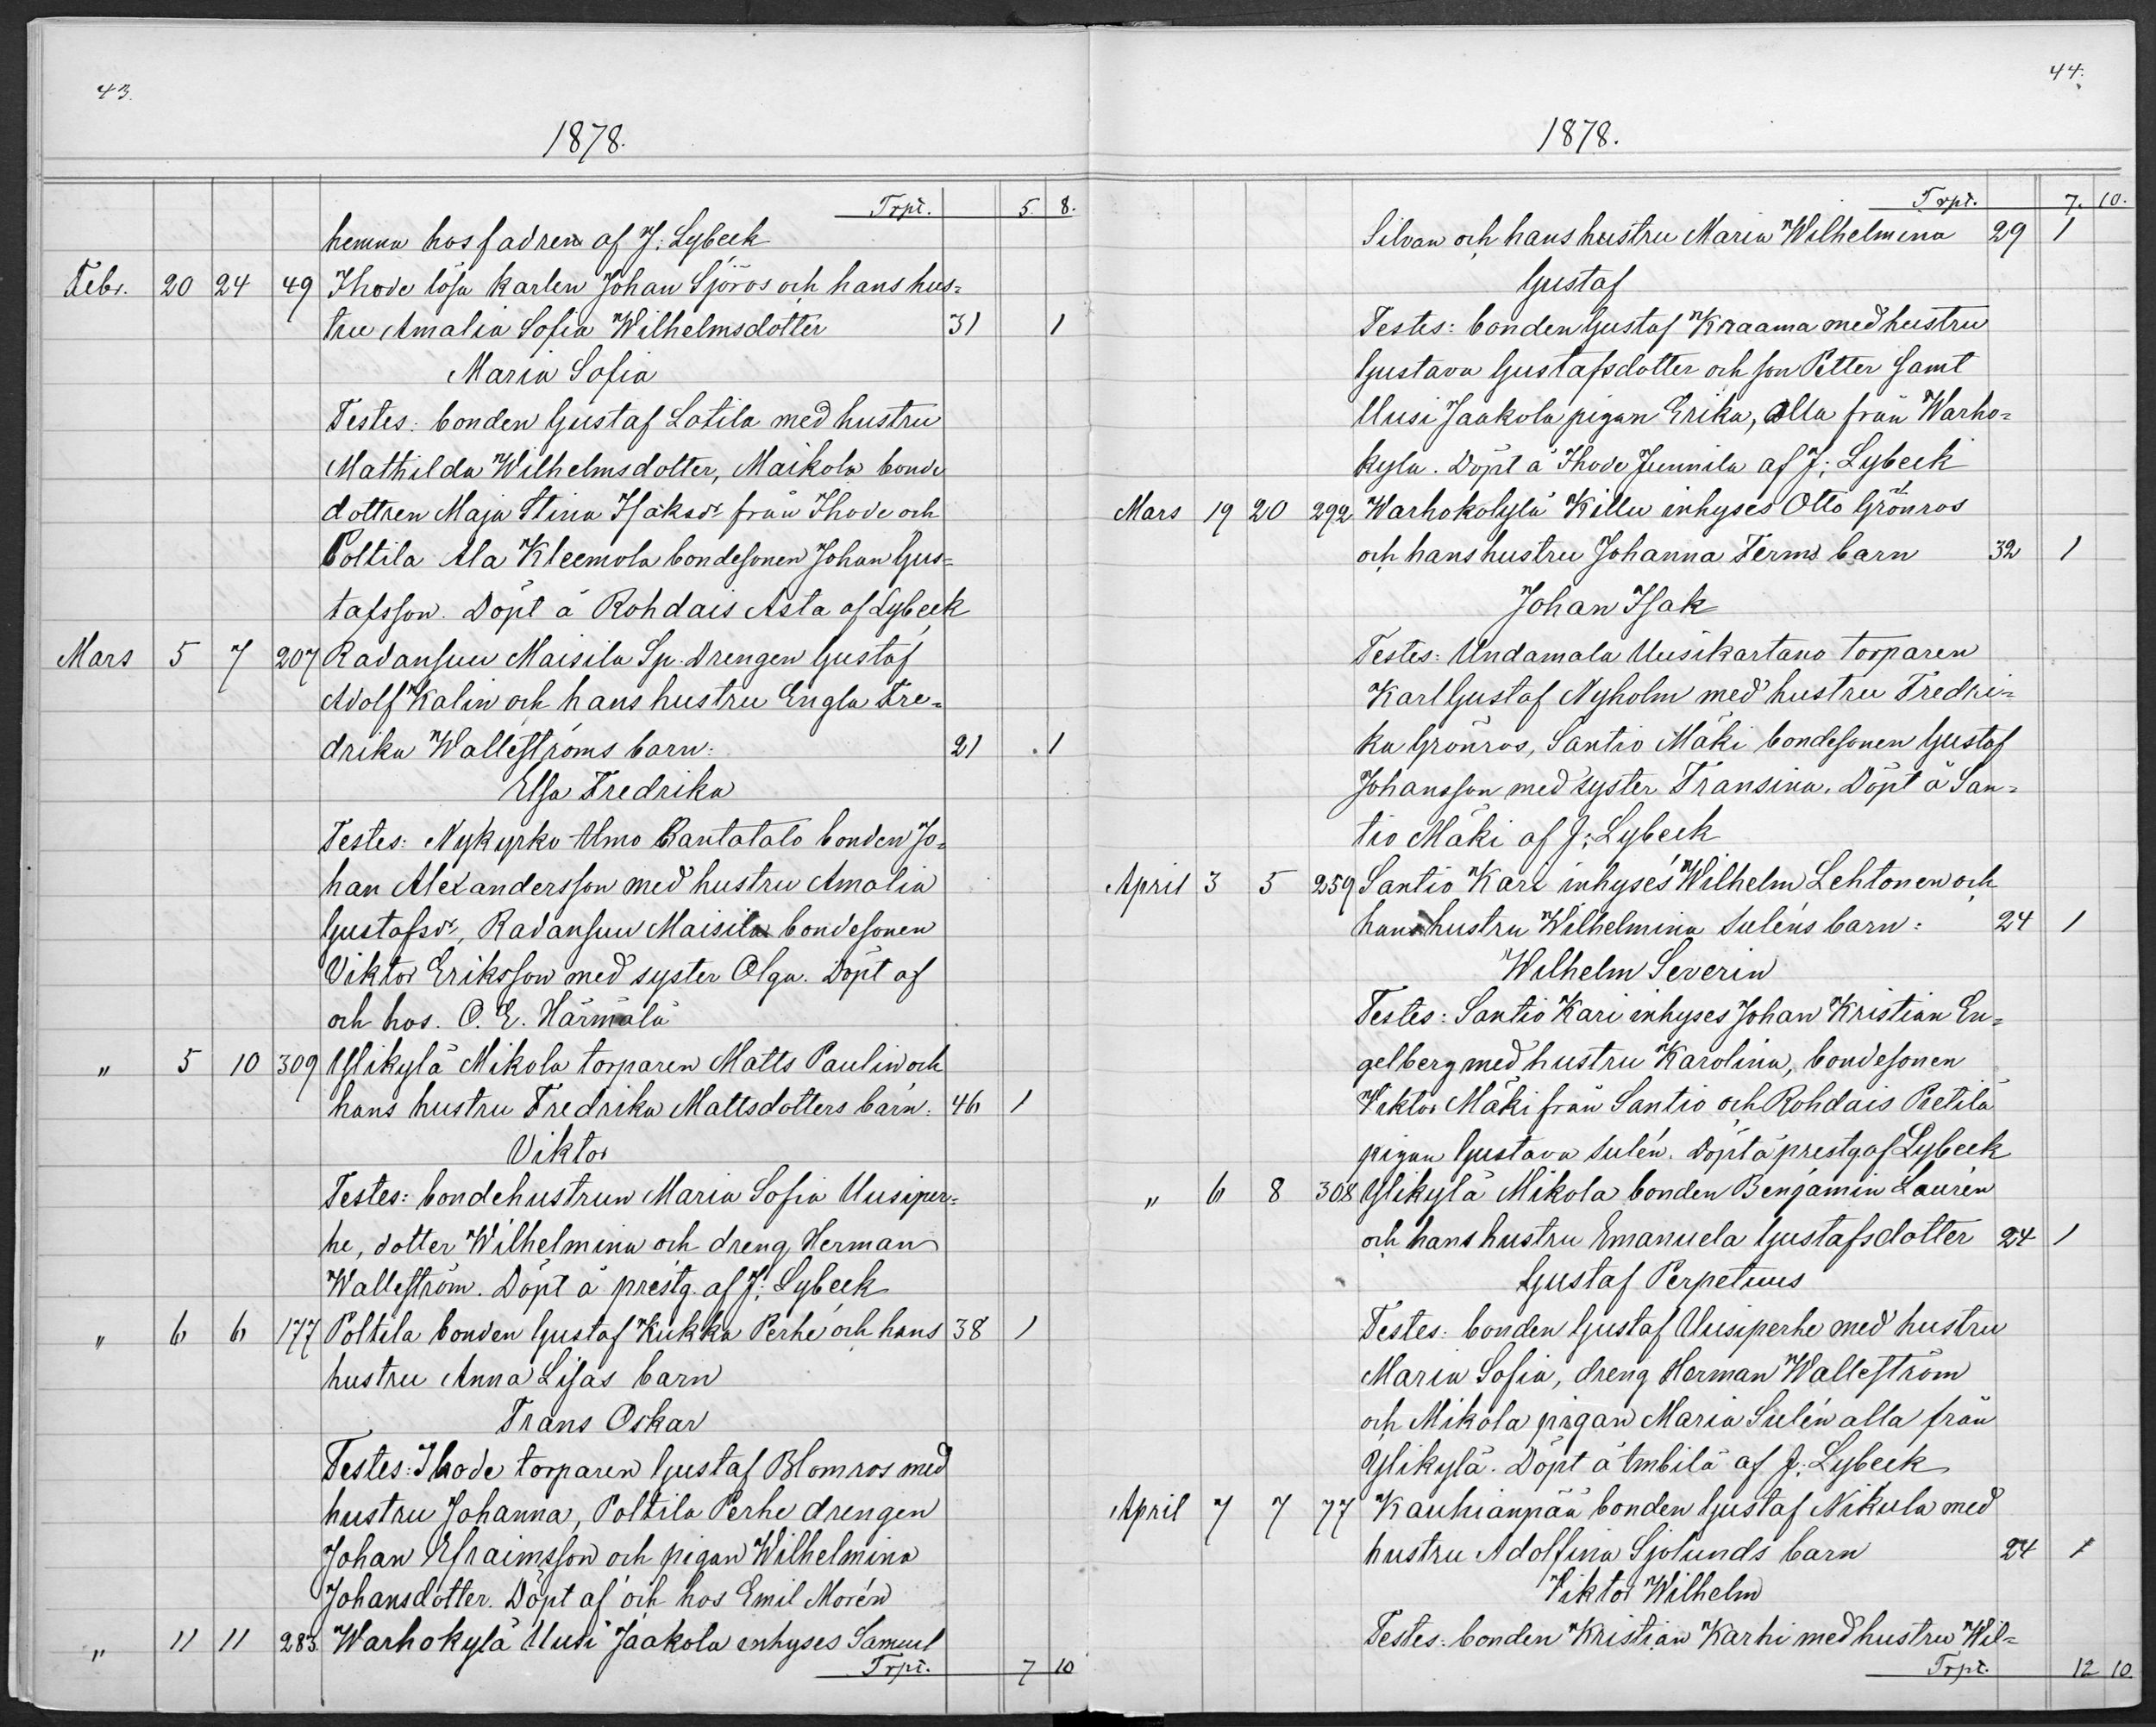 43.
1878.
Trpt. 5. 8.
hemma hos fadren af J. Lybeck
Febr. 20 24 49 Ihode lösa karlen Johan Sjöros och hans hus=
tru Amalia Sofia Wilhelmsdotter 31 1
Maria Sofia
Testes: bonden Gustaf Latila med hustru
Mathilda Wilhelmsdotter, Maikola bonde
dottren Maja Stina Isaksdr från Ihode och
Poltila Ala Kleemola bondesonen Johan Gus=
tafsson. Döpt å Rohdais Asta af Lybeck
Mars 5 7 207 Radansuu Maisila Sp. Drengen Gustaf
Adolf Kalin och hans hustru Engla Fre=
drika Walleströms barn. 21 1
Elsa Fredrika
Testes: Nykyrko Ulmo Rantatalo bonden Jo=
han Alexandersson med hustru Amalia
Gustafsdr, Radansuu Maisila bondesonen
Viktor Eriksson med syster Olga. Döpt af
och hos. O. E. Härmälä
" 5 10 309 Ylikylä Mikola torparen Matts Paulin och
hans hustru Fredrika Mattsdotters barn. 46 1
Viktor
Testes: bondehustrun Maria Sofia Uusiper=
he, dotter Wilhelmina och dreng Herman
Walleström. Döpt å prestg. af J. Lybeck
" 6 6 177 Poltila bonden Gustaf Kukka Perhe och hans 38 1
hustru Anna Lisas barn
Frans Oskar
Testes: Ihode torparen Gustaf Blomros med
hustru Johanna, Poltila Perhe drengen
Johan Efraimsson och pigan Wilhelmina
Johansdotter. Döpt af och hos Emil Morén
" 11 11 283. Warhokylä Uusi Jaakola inhyses Samuel
Trpt. 7 10
44.
1878.
Trpt. 7. 10.
Silvan och hans hustru Maria Wilhelmina 29 1
Gustaf
Testes: bonden Gustaf Kraama med hustru
Gustava Gustafsdotter och son Petter samt
Uusi Jaakola pigan Erika, alla från Warho=
kyla. Döpt å Ihode Junnila af J. Lybeck
Mars 19 20 292 Warhokolylä Killu inhyses Otto Grönros
och hans hustru Johanna Ferms barn 32 1
Johan Isak
Testes: Undamala Uusikartano torparen
Karl Gustaf Nyholm med hustru Fredri=
ka Grönros, Santio Mäki bondesonen Gustaf
Johansson med syster Fransina. Döpt å San=
tio Mäki af J. Lybeck
April 3 5 259 Santio Kari inhyses Wilhelm Lehtonen och
hans hustru Wilhelmina Suléns barn: 24 1
Wilhelm Severin
Testes: Santio Kari inhyses Johan Kristian En=
gelberg med hustru Karolina, bondesonen
Viktor Mäki från Santio och Rohdais Pietilä
pigan Gustava Sulén. Döpt å prestg af Lybeck
" 6 8 308 Ylikylä Mikola bonden Benjamin Laurén
och hans hustru Emanuela Gustafsdotter 24 1
Gustaf Perpetuus
Testes: bonden Gustaf Uusiperhe med hustru
Maria Sofia, dreng Herman Walleström
och Mikola pigan Maria Sulén alla från
Ylikylä. Döpt å Ambila af J. Lybeck
April 7 7 77 Kauhianpää bonden Gustaf Nikula med
hustru Adolfina Sjölunds barn 24 1
Viktor Wilhelm
Testes: bonden Kristian Karhi med hustru Wil=
Trpt. 12 10.